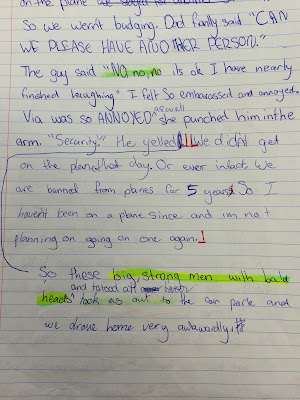 on the plane we
So we wern't budging. Dad fianlly said "CAN
WE PLEASE HAVE ANOTHER PERSON."
The guy said "NO, no, no its ok I have nearly
finished laughing" I felt So embarassed and annoyed.
Via was so ANNOYED as well she punched him in the
arm. "Security" He yelled!!! We didn't get
on the plane that day. Or ever infact. We
are banned from planes for 5 years! So I
haven't been on a plane since and im not
planning on going on one again.
So these big, strong men with bald
heads and tatood all over took us out to the car park and
we drove home very awkwardly.